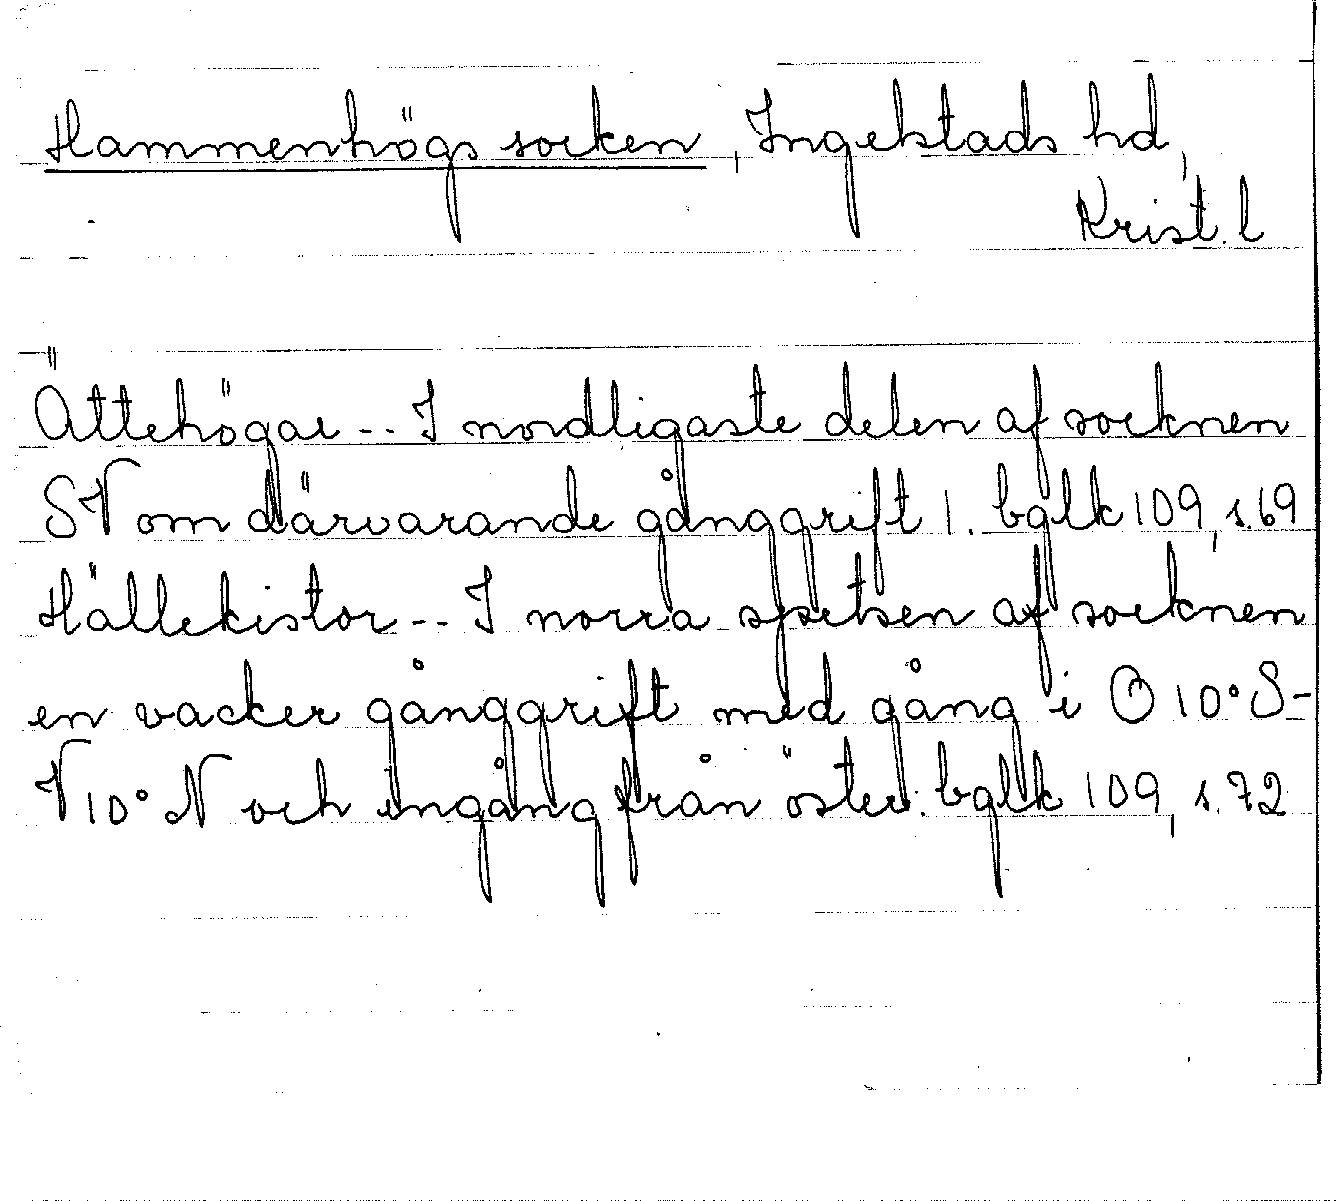 Hammenhögs socken, Ingelstads hd,
Krist. l
Ättehögar -- I nordligaste delen af socknen
SV om därvarande gånggrift 1. bglk 109, s. 69
Hällekistor -- I norra spetsen af socknen
en vacker gånggrift med gång i O 10° S-
V 10° N och ingång från öster. bglk 109, s. 72